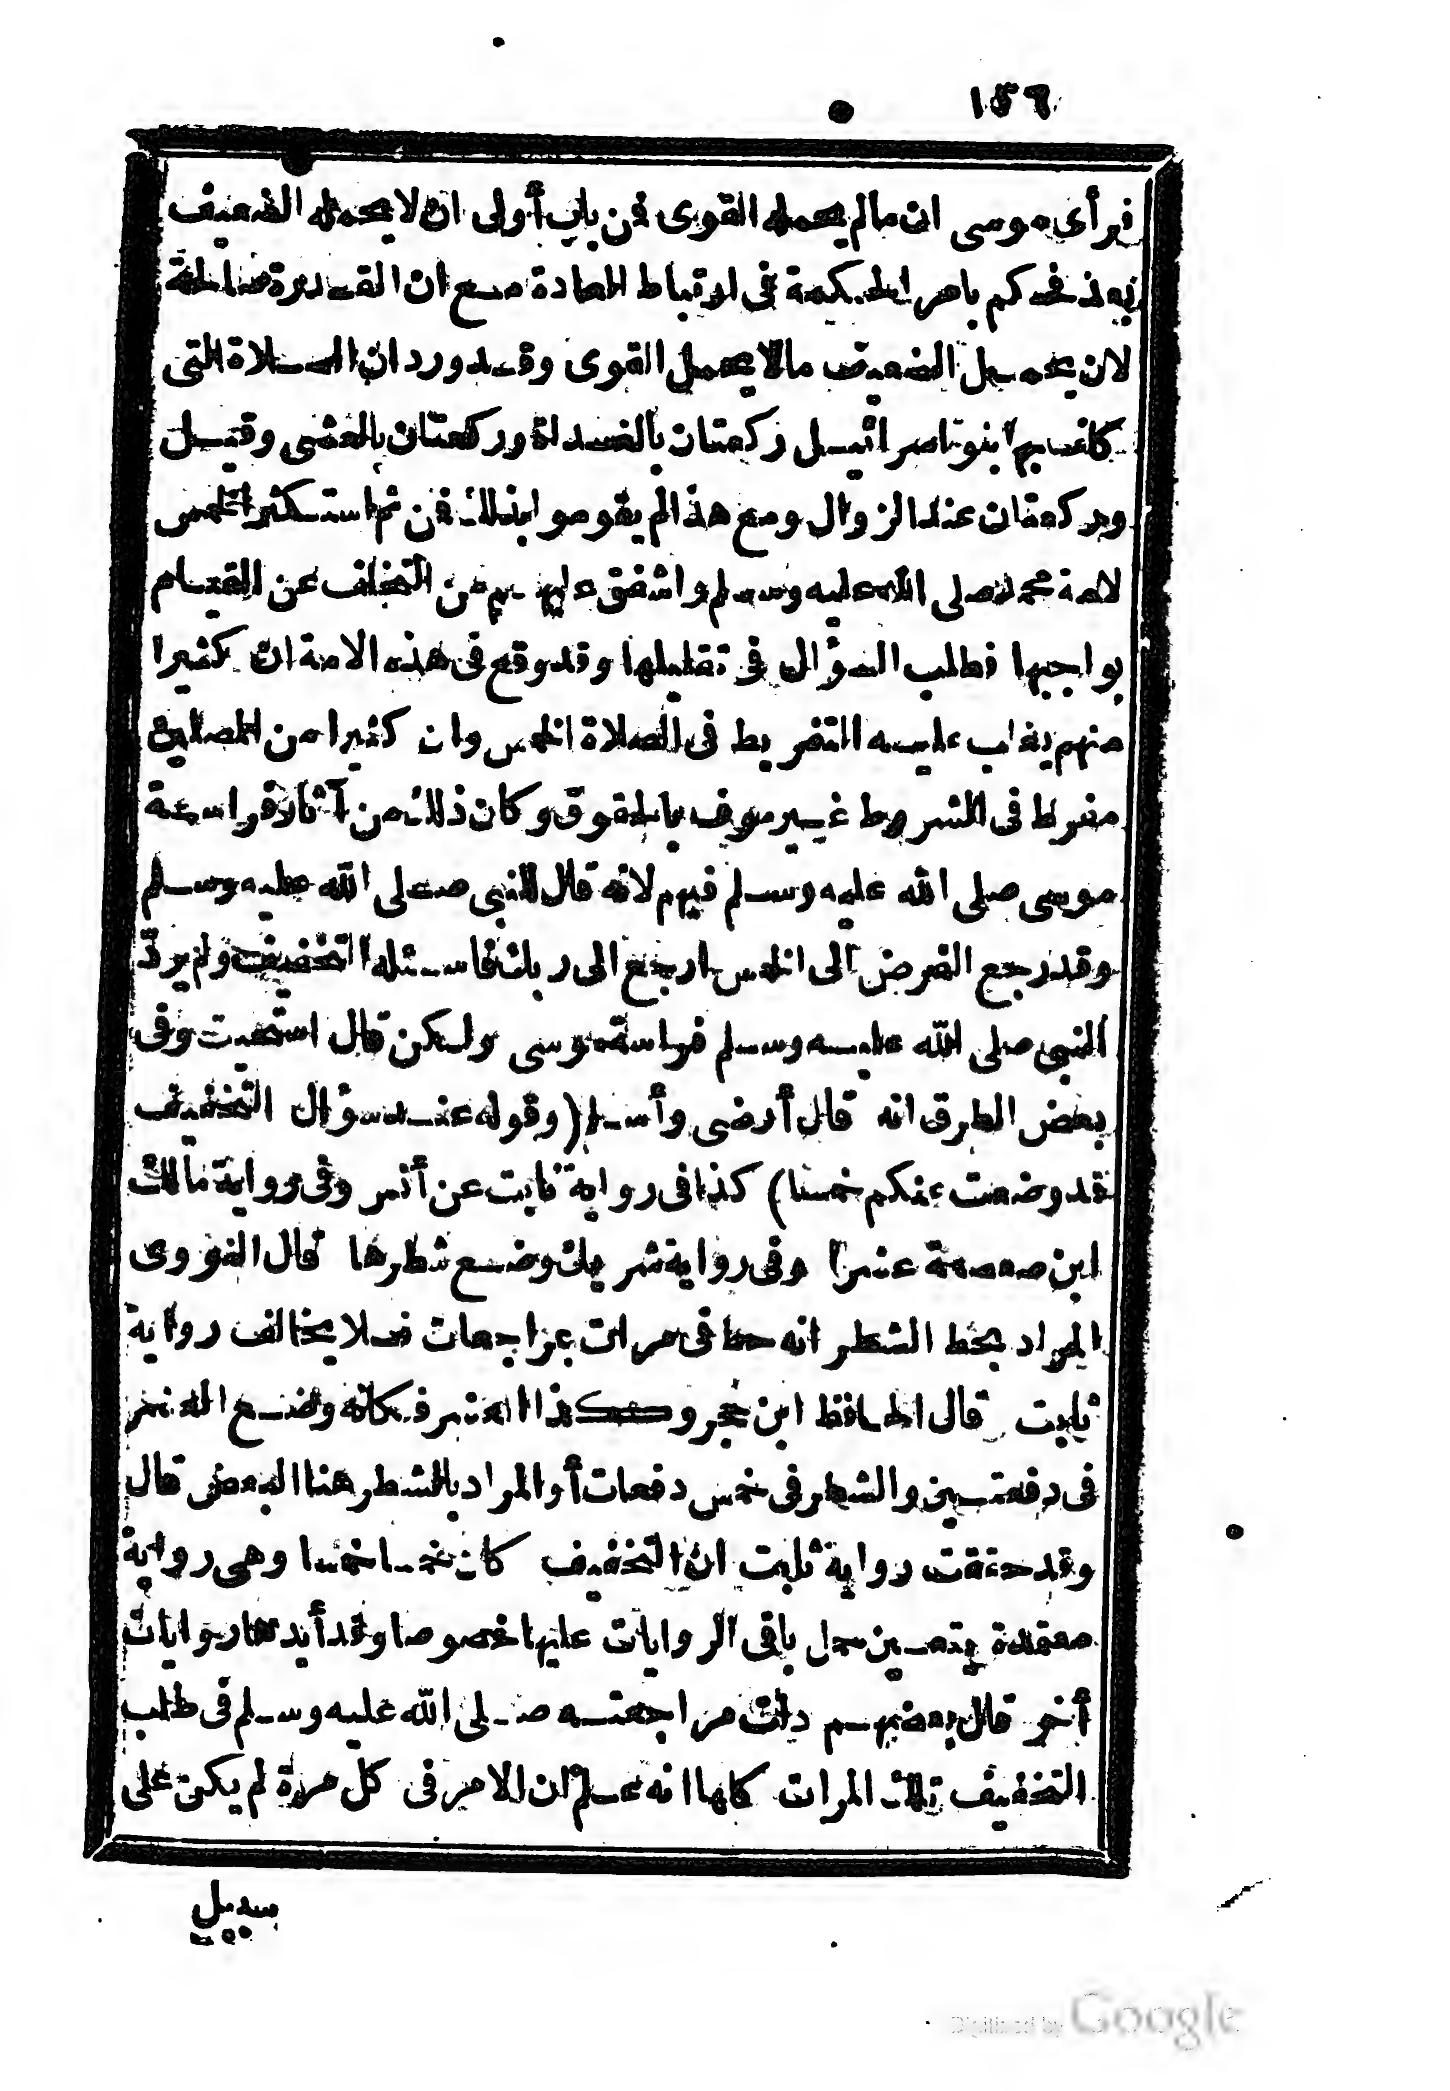 ١٤٦
فرأى موسى ان مالم يحمله القوى فمن باب أولى ان لا يحمله الضعيف
فحكم باهر الحكمة فى ارتباط العادة مع ان القدرة صالحة
لان يحمل الضعيف مالا يحمل القوى وقد ورد ان الصلاة التى
كلف بها بنو اسرائيل ركعتان بالغداة وركعتان بالعشى وقيل
وركعتان عند الزوال ومع هذا لم يقوموا بذلك فمن ثم استكثر الخمس
لامة محمد صلى الله عليه وسلم واشفق عليهم من التخلف عن القيام
بواجبها فطلب السؤال فى تقليلها وقد وقع فى هذه الامة ان كثيرا
منهم يغلب عليه التفريط فى الصلاة الخمس وان كثيرا من المصلين
مفرط فى الشروط غير موف بالحقوق وكان ذلك من آثار فراسة
موسى صلى الله عليه وسلم فيهم لانه قال للنبى صلى الله عليه وسلم
وقد رجع الفرض الى الخمس ارجع الى ربك فاسئله التخفيف ولم يردّ
النبى صلى الله عليه وسلم فراسة موسى ولكن قال استحييت وفى
بعض الطرق انه قال أرضى وأسلم (وقوله عند سؤال التخفيف
قد وضعت عنكم خمسا) كذا فى رواية ثابت عن أنس وفى رواية مالك
ابن صعصعة عشرا وفى رواية شريك وضع شطرها قال النووى
المراد بحط الشطر انه حط فى مرات بمراجعات فلا يخالف رواية
ثابت قال الحافظ ابن حجر وكذا العشر فكانه وضع العشر
فى دفعتين والشطر فى خمس دفعات أو المراد بالشطر هنا البعض قال
وقد حققت رواية ثابت ان التخفيف كان خمسا خمسا وهى رواية
معتمدة يتعين حمل باقى الروايات عليها خصوصا وقد أيدتها روايات
أخر قال بعضهم دلت مراجعته صلى الله عليه وسلم فى طلب
التخفيف تلك المرات كلها انه علم ان الامر فى كل مرة لم يكن على
سبيل
Digitized by Google